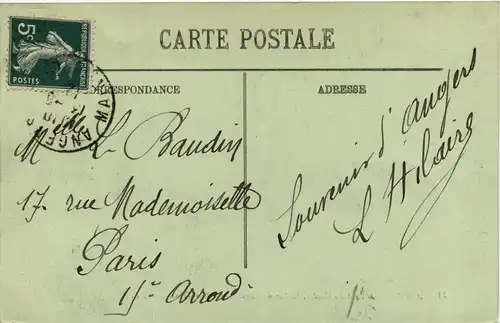 5c
REPUBLIQUE FRANÇAISE
POSTES
CARTE POSTALE
CORRESPONDANCE
ADRESSE
ANGERS
M L. Baudin
17. rue Mademoiselle
Paris
15e Arrond.
Souvenir d'Angers
L Hilaire